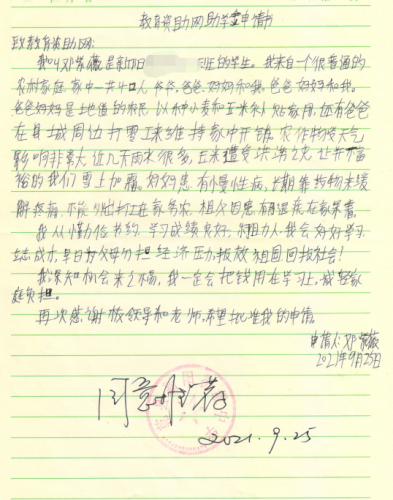 教育资助网助学金申请书
致教育资助网:
我叫邓紫薇是新旧 班的学生。我来自一个很普通的
农村家庭,家中一共4口人,爷爷,爸爸,妈妈和我。爸爸妈妈和我。
爸爸妈妈是土地道的农民,以种小麦和玉米补贴家用,还有爸爸
在县城周边打零工来维持家中开销,农作物受天气
影响非常大,近几年雨水很多,玉米遭受洪涝之灾,让并不富
裕的我们雪上加霜。妈妈患有慢性病,长期靠药物来缓
解疼痛,不能外出打工在家务农,祖父因患有 在家养着。
我从小勤俭节约,学习成绩良好,乐于助人,我会好好学习
立志成才,早日为父母分担经济压力,报效祖国回报社会!
我深知机会来之不易,我一定会把钱用在学习上,减轻家
庭负担。
再次感谢校领导和老师,希望批准我的申请。
申请人:邓紫薇
2021年9月25日
同意推荐
2021.9.25